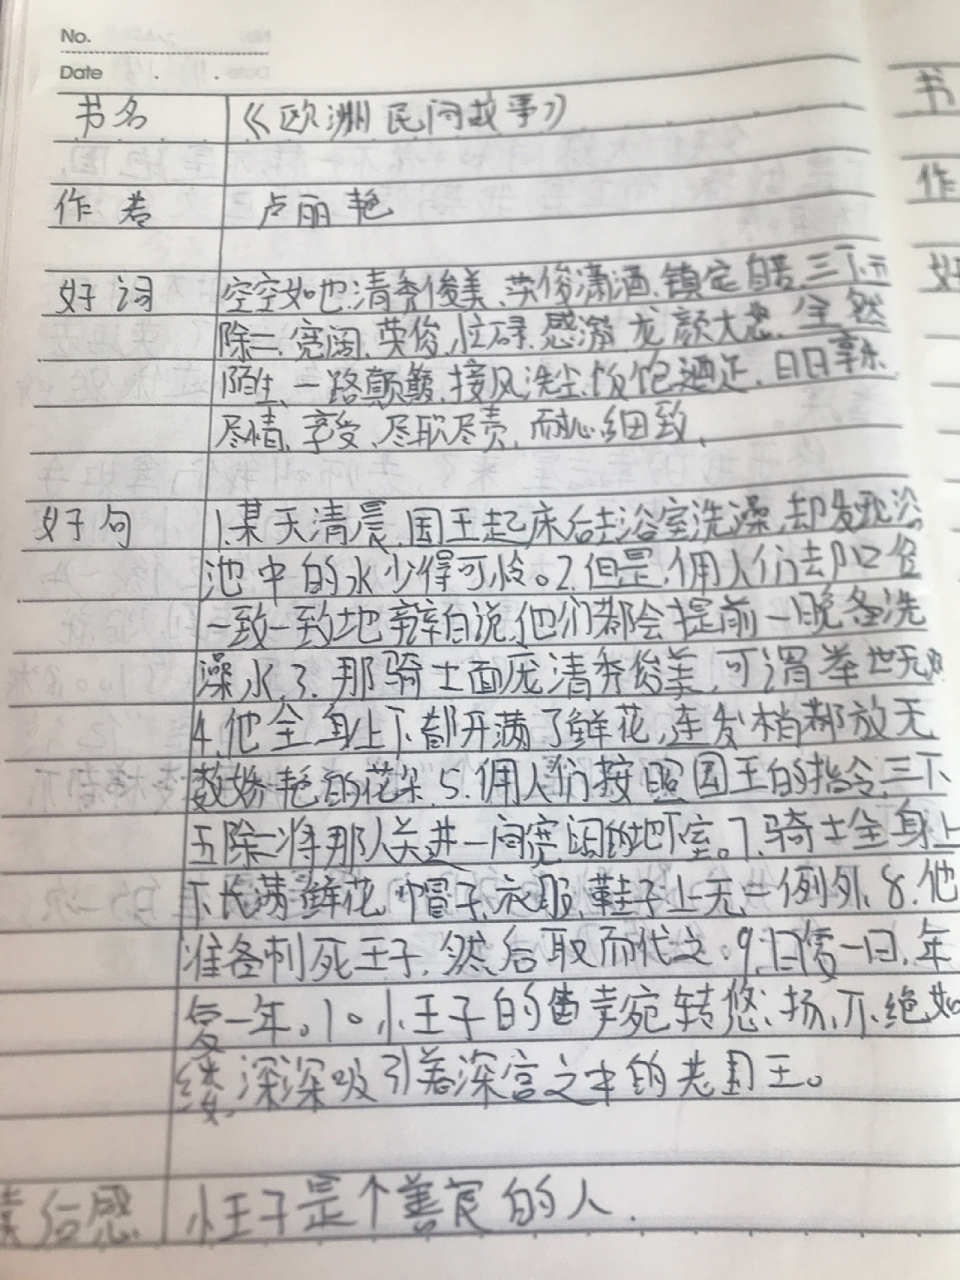 No.
Date . .
书名 《欧洲民间故事》
作者 卢丽艳
好词 空空如也、清秀俊美、英俊潇洒、镇定自若、三下五
除二、宽阔、英俊、忙碌、感激、龙颜大怒、全然
陌生、一路颠簸、接风洗尘、饭饱酒足、日日享乐
尽情、享受、尽职尽责、耐心细致、
好句 1.某天清晨,国王起床后去浴室洗澡,却发现浴
池中的水少得可怜。2.但是,佣人们去口径
一致一致地辩白说,他们都会提前一晚备洗
澡水,3.那骑士面庞清秀俊美,可谓举世无双
4.他全身上下都开满了鲜花,连发梢都放无
数娇艳的花朵.5.佣人们按照国王的指令,三下
五除二将那人关进一间宽阔的地下室。7.骑士全身上
下长满鲜花,帽子,衣服,鞋子上无一例外.8.他
准备刺死王子,然后取而代之。9.日复一日,年
复一年。10.小王子的笛声宛转悠扬,不绝如
缕,深深吸引着深宫之中的老国王。
读后感 小王子是个善良的人.
书
作
好